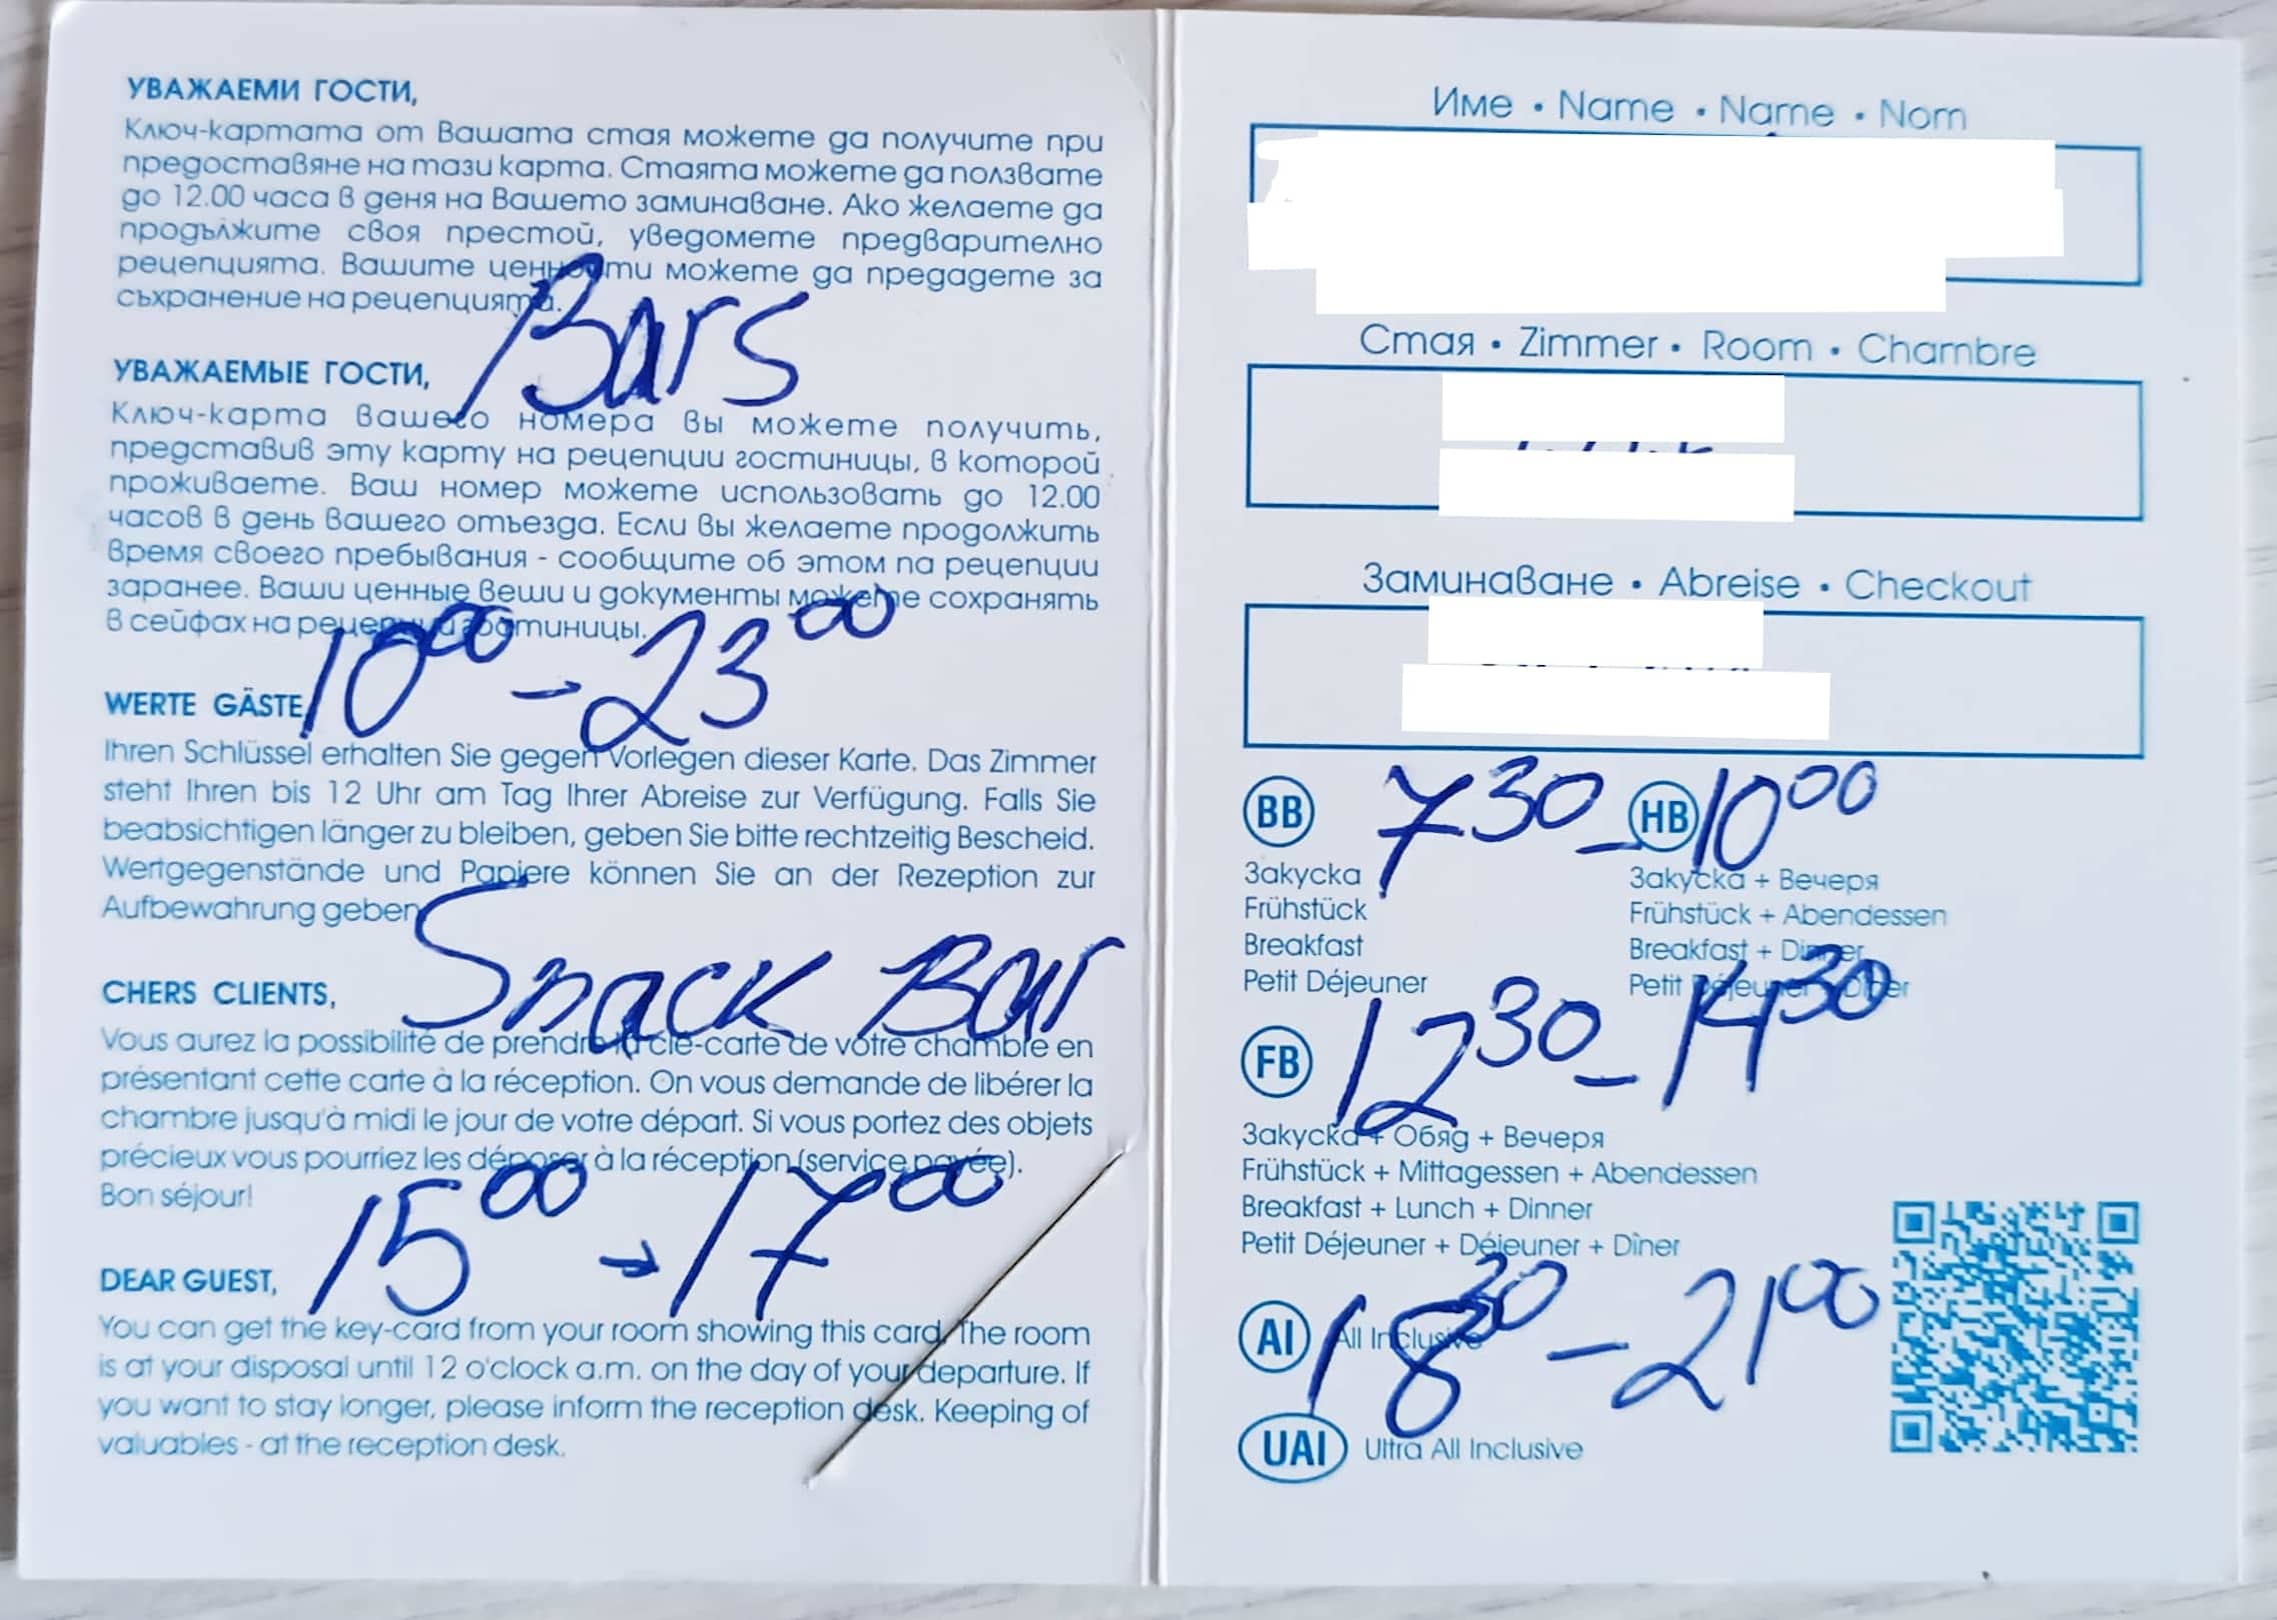 УВАЖАЕМИ ГОСТИ,
Ключ-картата от Вашата стая можете да получите при
предоставяне на тази карта. Стаята можете да ползвате
до 12.00 часа в деня на Вашето заминаване. Ако желаете да
продължите своя престой, уведомете предварително
рецепцията. Вашите ценности можете да предадете за
съхранение на рецепцията.
Bars
УВАЖАЕМЫЕ ГОСТИ,
Ключ-карта вашего номера вы можете получить,
представив эту карту на рецепции гостиницы, в которой
проживаете. Ваш номер можете использовать до 12.00
часов в день вашего отъезда. Если вы желаете продолжить
время своего пребывания - сообщите об этом па рецепции
заранее. Ваши ценные веши и документы можете сохранять
в сейфах на рецепции гостиницы.
10⁰⁰ - 23⁰⁰
WERTE GÄSTE
Ihren Schlüssel erhalten Sie gegen Vorlegen dieser Karte. Das Zimmer
steht Ihren bis 12 Uhr am Tag Ihrer Abreise zur Verfügung. Falls Sie
beabsichtigen länger zu bleiben, geben Sie bitte rechtzeitig Bescheid.
Wertgegenstände und Papiere können Sie an der Rezeption zur
Aufbewahrung geben
Snack Bar
CHERS CLIENTS,
Vous aurez la possibilité de prendre la clé-carte de votre chambre en
présentant cette carte à la réception. On vous demande de libérer la
chambre jusqu'à midi le jour de votre départ. Si vous portez des objets
précieux vous pourriez les déposer à la réception (service payée).
Bon séjour!
15⁰⁰ → 17⁰⁰
DEAR GUEST,
You can get the key-card from your room showing this card. The room
is at your disposal until 12 o'clock a.m. on the day of your departure. If
you want to stay longer, please inform the reception desk. Keeping of
valuables - at the reception desk.
Име • Name • Name • Nom
Стая • Zimmer • Room • Chambre
Заминаване • Abreise • Checkout
7³⁰ - 10⁰⁰
BB
Закуска
Frühstück
Breakfast
Petit Déjeuner
HB
Закуска + Вечеря
Frühstück + Abendessen
Breakfast + Dinner
Petit Déjeuner + Dîner
12³⁰ - 14³⁰
FB
Закуска + Обяд + Вечеря
Frühstück + Mittagessen + Abendessen
Breakfast + Lunch + Dinner
Petit Déjeuner + Déjeuner + Dîner
18³⁰ - 21⁰⁰
AI All Inclusive
UAI Ultra All Inclusive